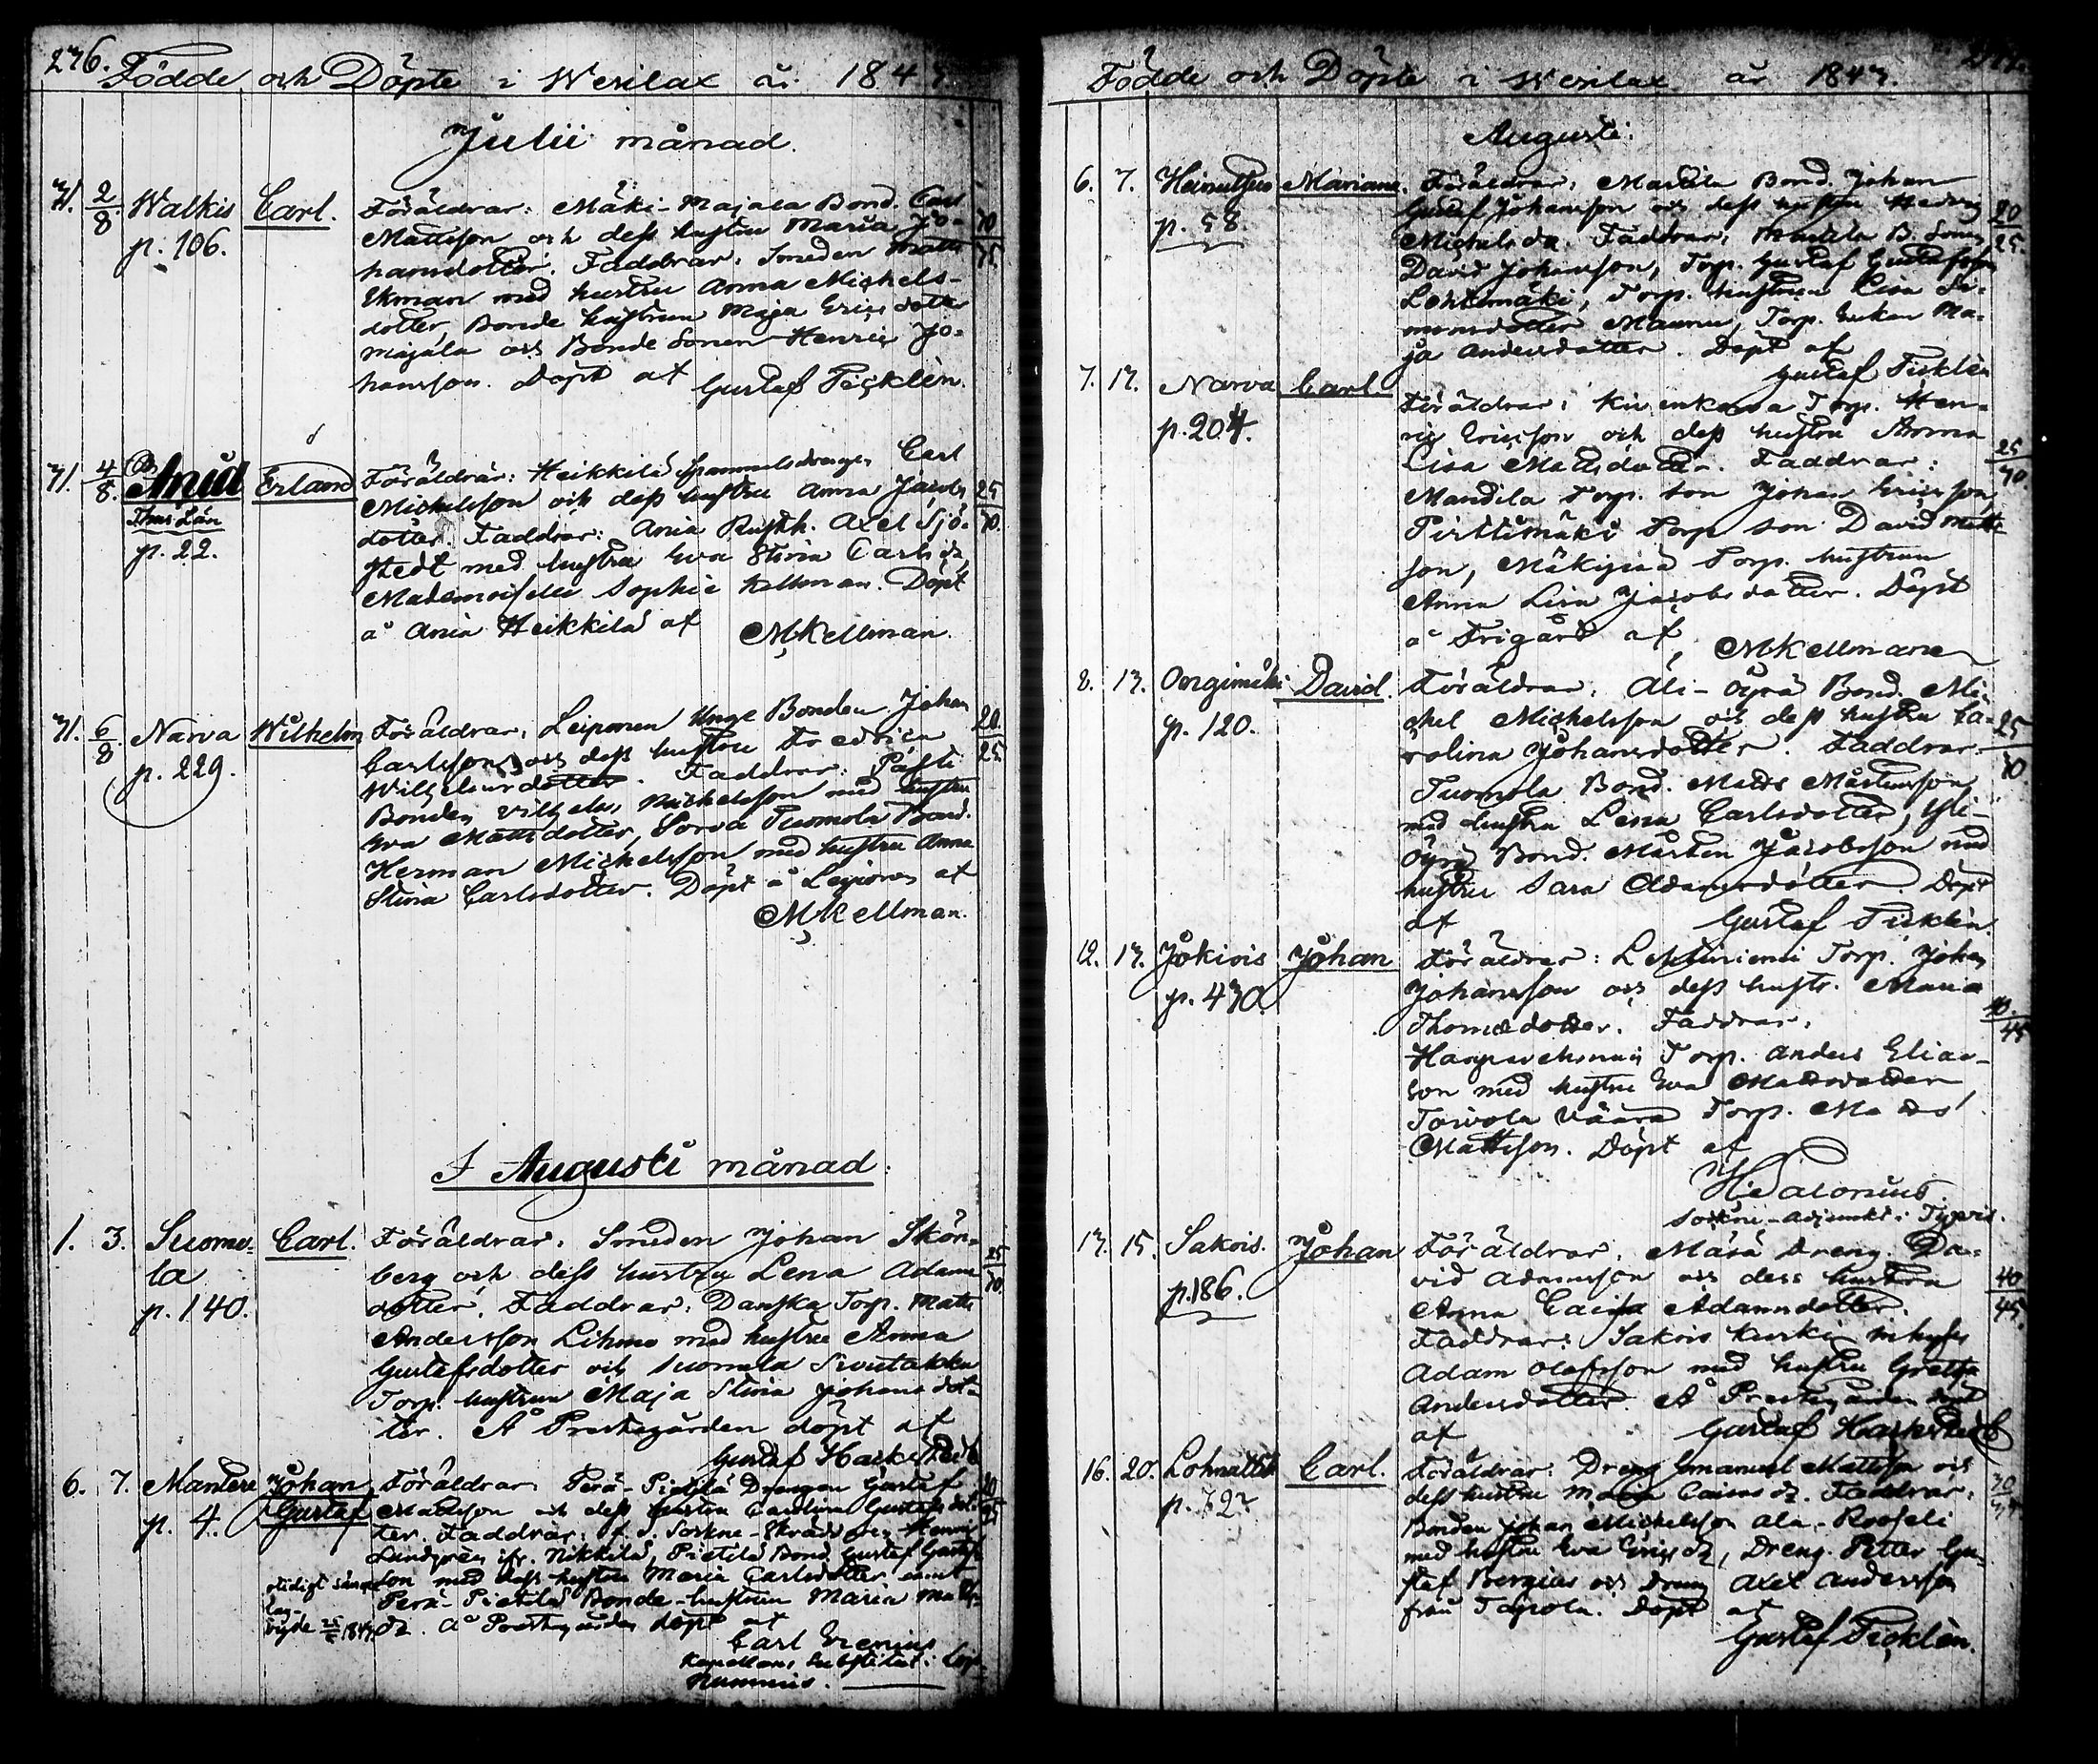 276.
Födde och Döpte i Wesilax år 1843.
Julii månad.
31. 2/8. Walkis p. 106. Carl. Föräldrar: Mäki-Majala Bond. Carl
Mattsson och dess hustru Maria Jo-
hansdotter. Faddrar: Smeden Matts
Ekman med hustru Anna Michels-
dotter, Bonde hustrun Maja Ericsdotter
Majala och Bonde Sonen Henric Jo-
hansson. Döpt af Gustaf Ticklén.
31. 4/8. p. 22. Erland Föräldrar: Heikkilä Gammelsdrengen Carl
Michelsson och dess hustru Anna Jacobs
dotter. Faddrar: Ania Rusth. Axel Sjö-
stedt med hustru Eva Stina Carlsdr,
Mademoiselle Sophie Kellman. Döpt
å Ania Heikkilä af MKellman.
25/30.
31. 6/8. Narva p. 229. Wilhelm Föräldrar: Leiponen Unge Bonden Johan
Carlsson och dess hustru Fredrica
Wilhelmsdotter. Faddrar:
Bonden Vilhelm Michelsson med hustru
Eva Mattsdotter, Tuomola Bond.
Herman Michelsson med hustru Anna
Stina Carlsdotter. Döpt å Leiponen af
MKellman.
20/25
I Augusti månad.
1. 3. Suomela p. 140. Carl. Föräldrar: Smeden Johan Skön-
berg och dess hustru Lena Adams
dotter. Faddrar: Danska Torp. Matts
Andersson Lihmo med hustru Anna
Gustafsdotter och Suomela
Torp. hustrun Maja Stina Johansdot-
ter. Å Prestegården döpt af
Gustaf Hackstedt
25/30.
6. 7. Mantere p. 4. Johan Gustaf Föräldrar: Perä-Pietilä Drengen Gustaf
Mattsson och dess hustru Carolina Gustafsdot-
ter. Faddrar: f. d. Sockne-Skräddaren Henric
Lundgren ifr. Nikkilä, Pietilä Bond. Gustaf Gustafs-
son med dess hustru Maria Carlsdotter samt
Perä-Pietilä Bonde-hustrun Maria Matts-
dr. Å Prestegården döpt af
Carl Erenius
Kapellans Substitut i
Nummis.
Födde och Döpte i Wesilax år 1843.
Augusti.
6. 7. p. 58. Mariana. Föräldrar: Mattila Bond. Johan
Gustaf Johansson och dess hustru Hedvig
Michelsdr. Faddrar: Mattila B. Sonen
David Johansson, Torp. Gustaf Gustafsson
Lehtimäki, Torp. hustrun Lisa Si-
monsdotter Maunu, Torp. Enkan Ma-
ja Andersdotter. Döpt af
Gustaf Ticklén
20/25.
7. 13. Narva p. 204. Carl. Föräldrar: Torp. Hen-
ric Ericsson och dess hustru Anna
Lisa Mattsdotter. Faddrar:
Mandila Torp. son Johan Ericsson,
Pirttimäki Torp son David Matts-
son, Torp. hustrun
Anna Lisa Jacobsdotter. Döpt
å Frigård af MKellman
25/30.
8. 13. Ongimäki p. 120. David. Föräldrar: Ali-Öyrä Bond. Mi-
chel Michelsson och dess hustru Ca-
rolina Johansdotter. Faddrar:
Tuomola Bond. Matts Mårtensson
med hustru Lena Carlsdotter, Yli-
Öyrä Bond. Mårten Jacobsson med
hustru Sara Adamsdotter. Döpt
af Gustaf Ticklén.
25/30
12. 13. Jokiois p. 430. Johan Föräldrar: Torp. Johan
Johansson och dess hustr. Maria
Thomædotter. Faddrar:
Torp. Anders Elias-
son med hustru Eva Mattsdotter,
Toivola Torp. Matts
Mattsson. Döpt af
HSalonius
Sockne-Adjunkt i Tyrvis.
40./45
13. 15. Sakois. p. 186. Johan Föräldrar: Mäsä Dreng. Da-
vid Adamsson och dess hustru
Anna Caisa Adamsdotter.
Faddrar: Sakois Kurki Inhyses
Adam Olofsson med hustru Greta
Andersdotter. Å Prestegården döpt
af Gustaf Hackstedt
40/45.
16. 20. p. 392 Carl. Föräldrar: Dreng Emanuel Mattsson och
dess hustru Maria dr. Faddrar:
Bonden Johan Michelsson Ala-
med hustru Eva Ericsdr, Dreng. Petter Gu-
staf Bergius och Dreng Axel Andersson
från Tapola. Döpt af
Gustaf Ticklén.